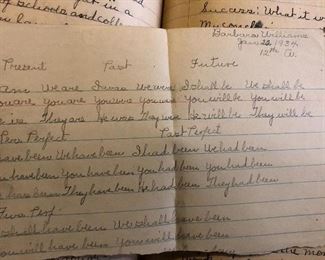 of schools and
Success: What it
Barbara Williams
Jan 22, 1934
12th A.
Present Past Future
am We are I was We were I shall be We shall be
You are You are You were You were You will be You will be
He is They are He was They were He will be They will be
Pres. Perfect Past Perfect
have been We have been I had been We had been
have been You have been You had been You had been
has been They have been He had been They had been
Fu. Perf.
shall have been We shall have been
You will have been You will have been
have been